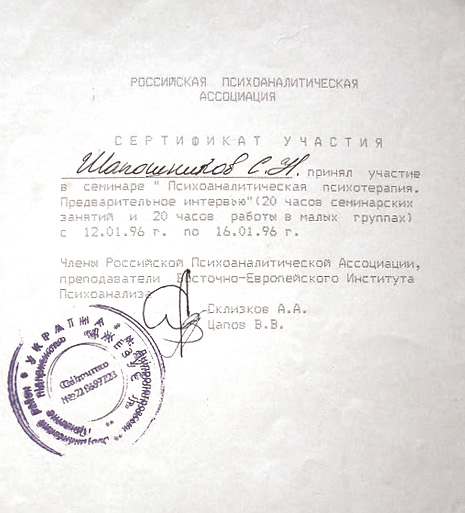 РОССИЙСКАЯ ПСИХОАНАЛИТИЧЕСКАЯ
АССОЦИАЦИЯ
СЕРТИФИКАТ УЧАСТИЯ
Шапошников С.Н. принял участие
в семинаре " Психоаналитическая психотерапия.
Предварительное интервью"(20 часов семинарских
занятий и 20 часов работы в малых группах)
с 12.01.96 г. по 16.01.96 г.
Члены Российской Психоаналитической Ассоциации,
преподаватели Восточно-Европейского Института
Психоанализа
Склизков А.А.
Цапов В.В.
УКРАЇНА